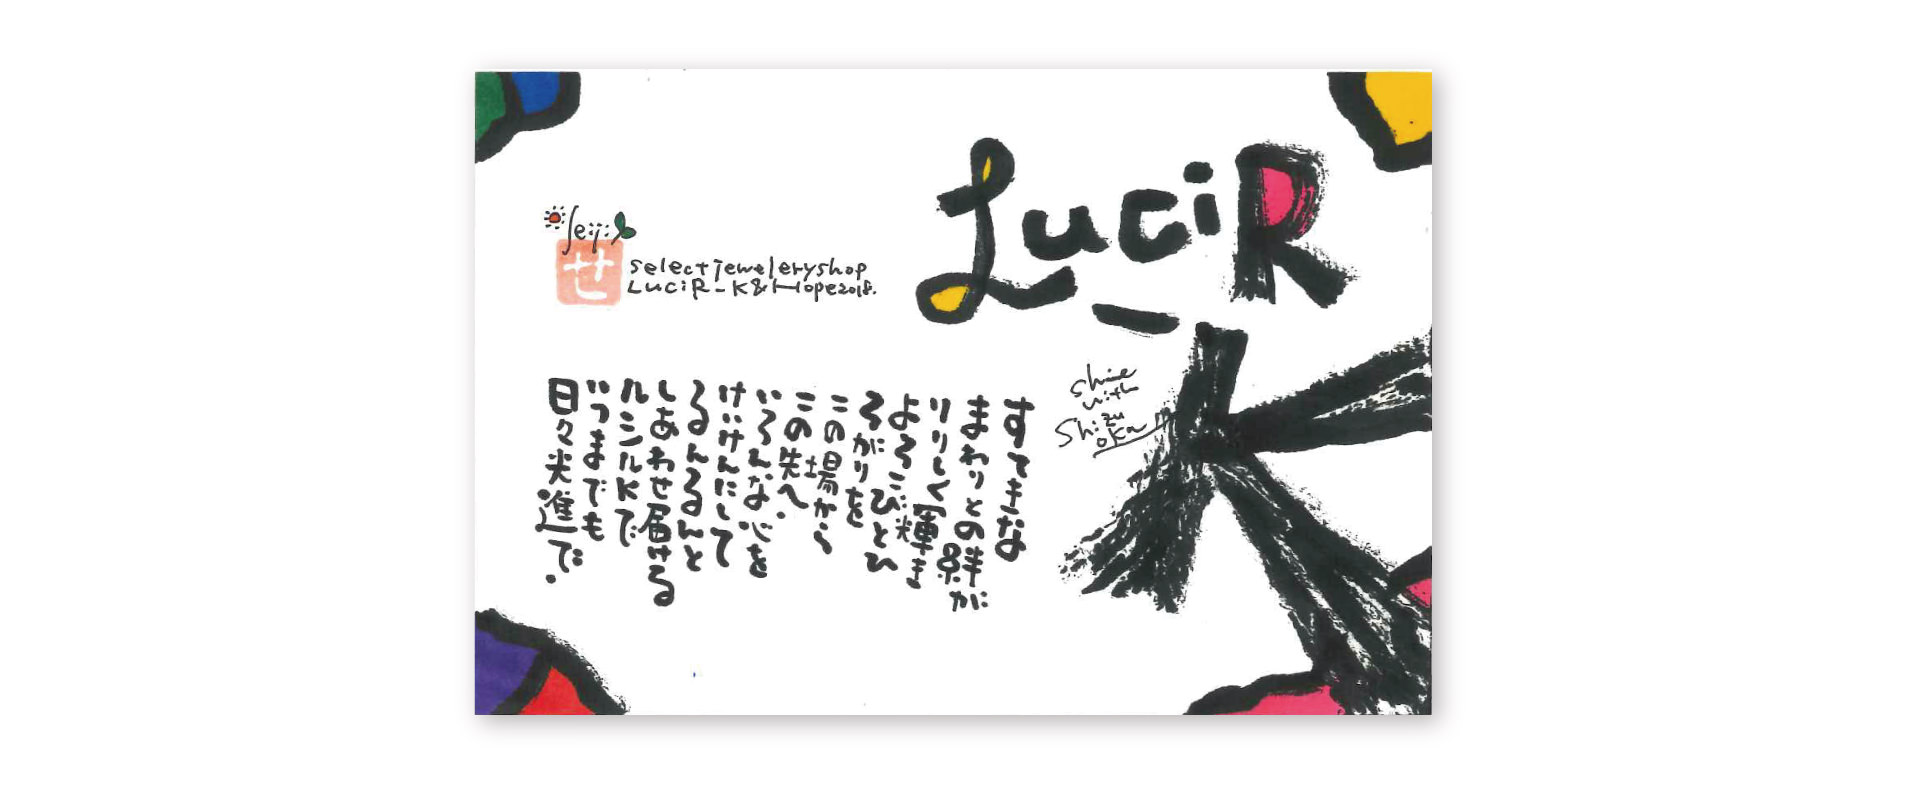 LuciR
_
K
Seiji
せ
select jewelery shop
LuciR_K&Hope2018.
shine
with
Shizu
oka
すてきな
まわりとの絆が
りりしく輝き
よろこびひとひ
ろがりを
この場から
この先へ。
いろんな心を
けいけんにして
るんるんと
しあわせ届ける
ルシルKで
いつまでも
日々光進で。